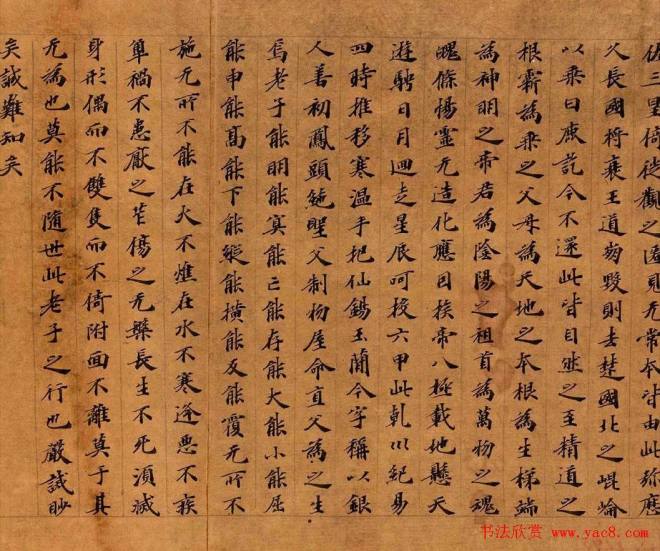 佐三皇倚徙觀之匿見无常本皆由此弥應
久長國將衰王道崩毀則去楚國北之崐崘
以乘白鹿訖今不還此皆自然之至精道之
根霸為乘之父母為天地之本根為生梯端
為神明之帝君為陰陽之祖首為萬物之魂
魄條暢靈无造化應因挨帝八極載地懸天
遊騁日月迴走星辰呵投六甲此乹川紀易
四時推移寒温手把仙錫玉蕑今字稱以銀
人善初鳳頭絶聖父制物屋命直父為之生
焉老子能明能冥能亡能存能大能小能屈
能申能高能下能縱能橫能反能覆无所不
施无所不能在火不燋在水不寒逢惡不疾
禍不患厭之苦傷之无槃長生不死湏滅
身形偶而不雙隻而不倚附面不離莫于其
无為也莫能不随世此老子之行也嚴誡眇
矣誠難知矣
书法欣赏 www.yac8.com